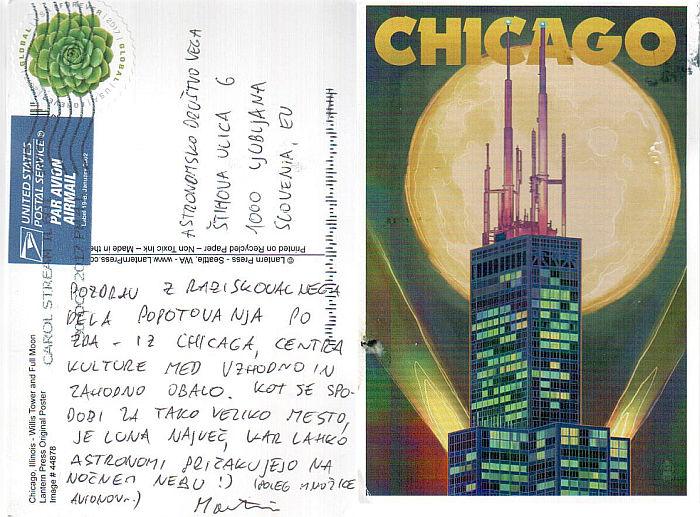 GLOBAL FOREVER 2017
UNITED STATES
POSTAL SERVICE®
PAR AVION
AIRMAIL
Label 19-B, January 2002
CAROL STREAM IL
ASTRONOMSKO DRUŠTVO VEGA
ŠTIHOVA ULICA 6
1000 LJUBLJANA
SLOVENIA, EU
© Lantern Press - Seattle, WA - www.LanternPress.co
Printed on Recycled Paper - Non Toxic Ink - Made in the
Chicago, Illinois - Willis Tower and Full Moon
Lantern Press Original Poster
Image # 44878
POZDRAV Z RAZISKOVALNEGA
DELA POPOTOVANJA PO
ZDA - IZ CHICAGA, CENTRA
KULTURE MED VZHODNO IN
ZAHODNO OBALO. KOT SE SPO-
DOBI ZA TAKO VELIKO MESTO,
JE LUNA NAJVEČ, KAR LAHKO
ASTRONOMI PRIČAKUJEJO NA
NOČNEM NEBU :) (POLEG MNOŽICE
AVIONOV..)
CHICAGO